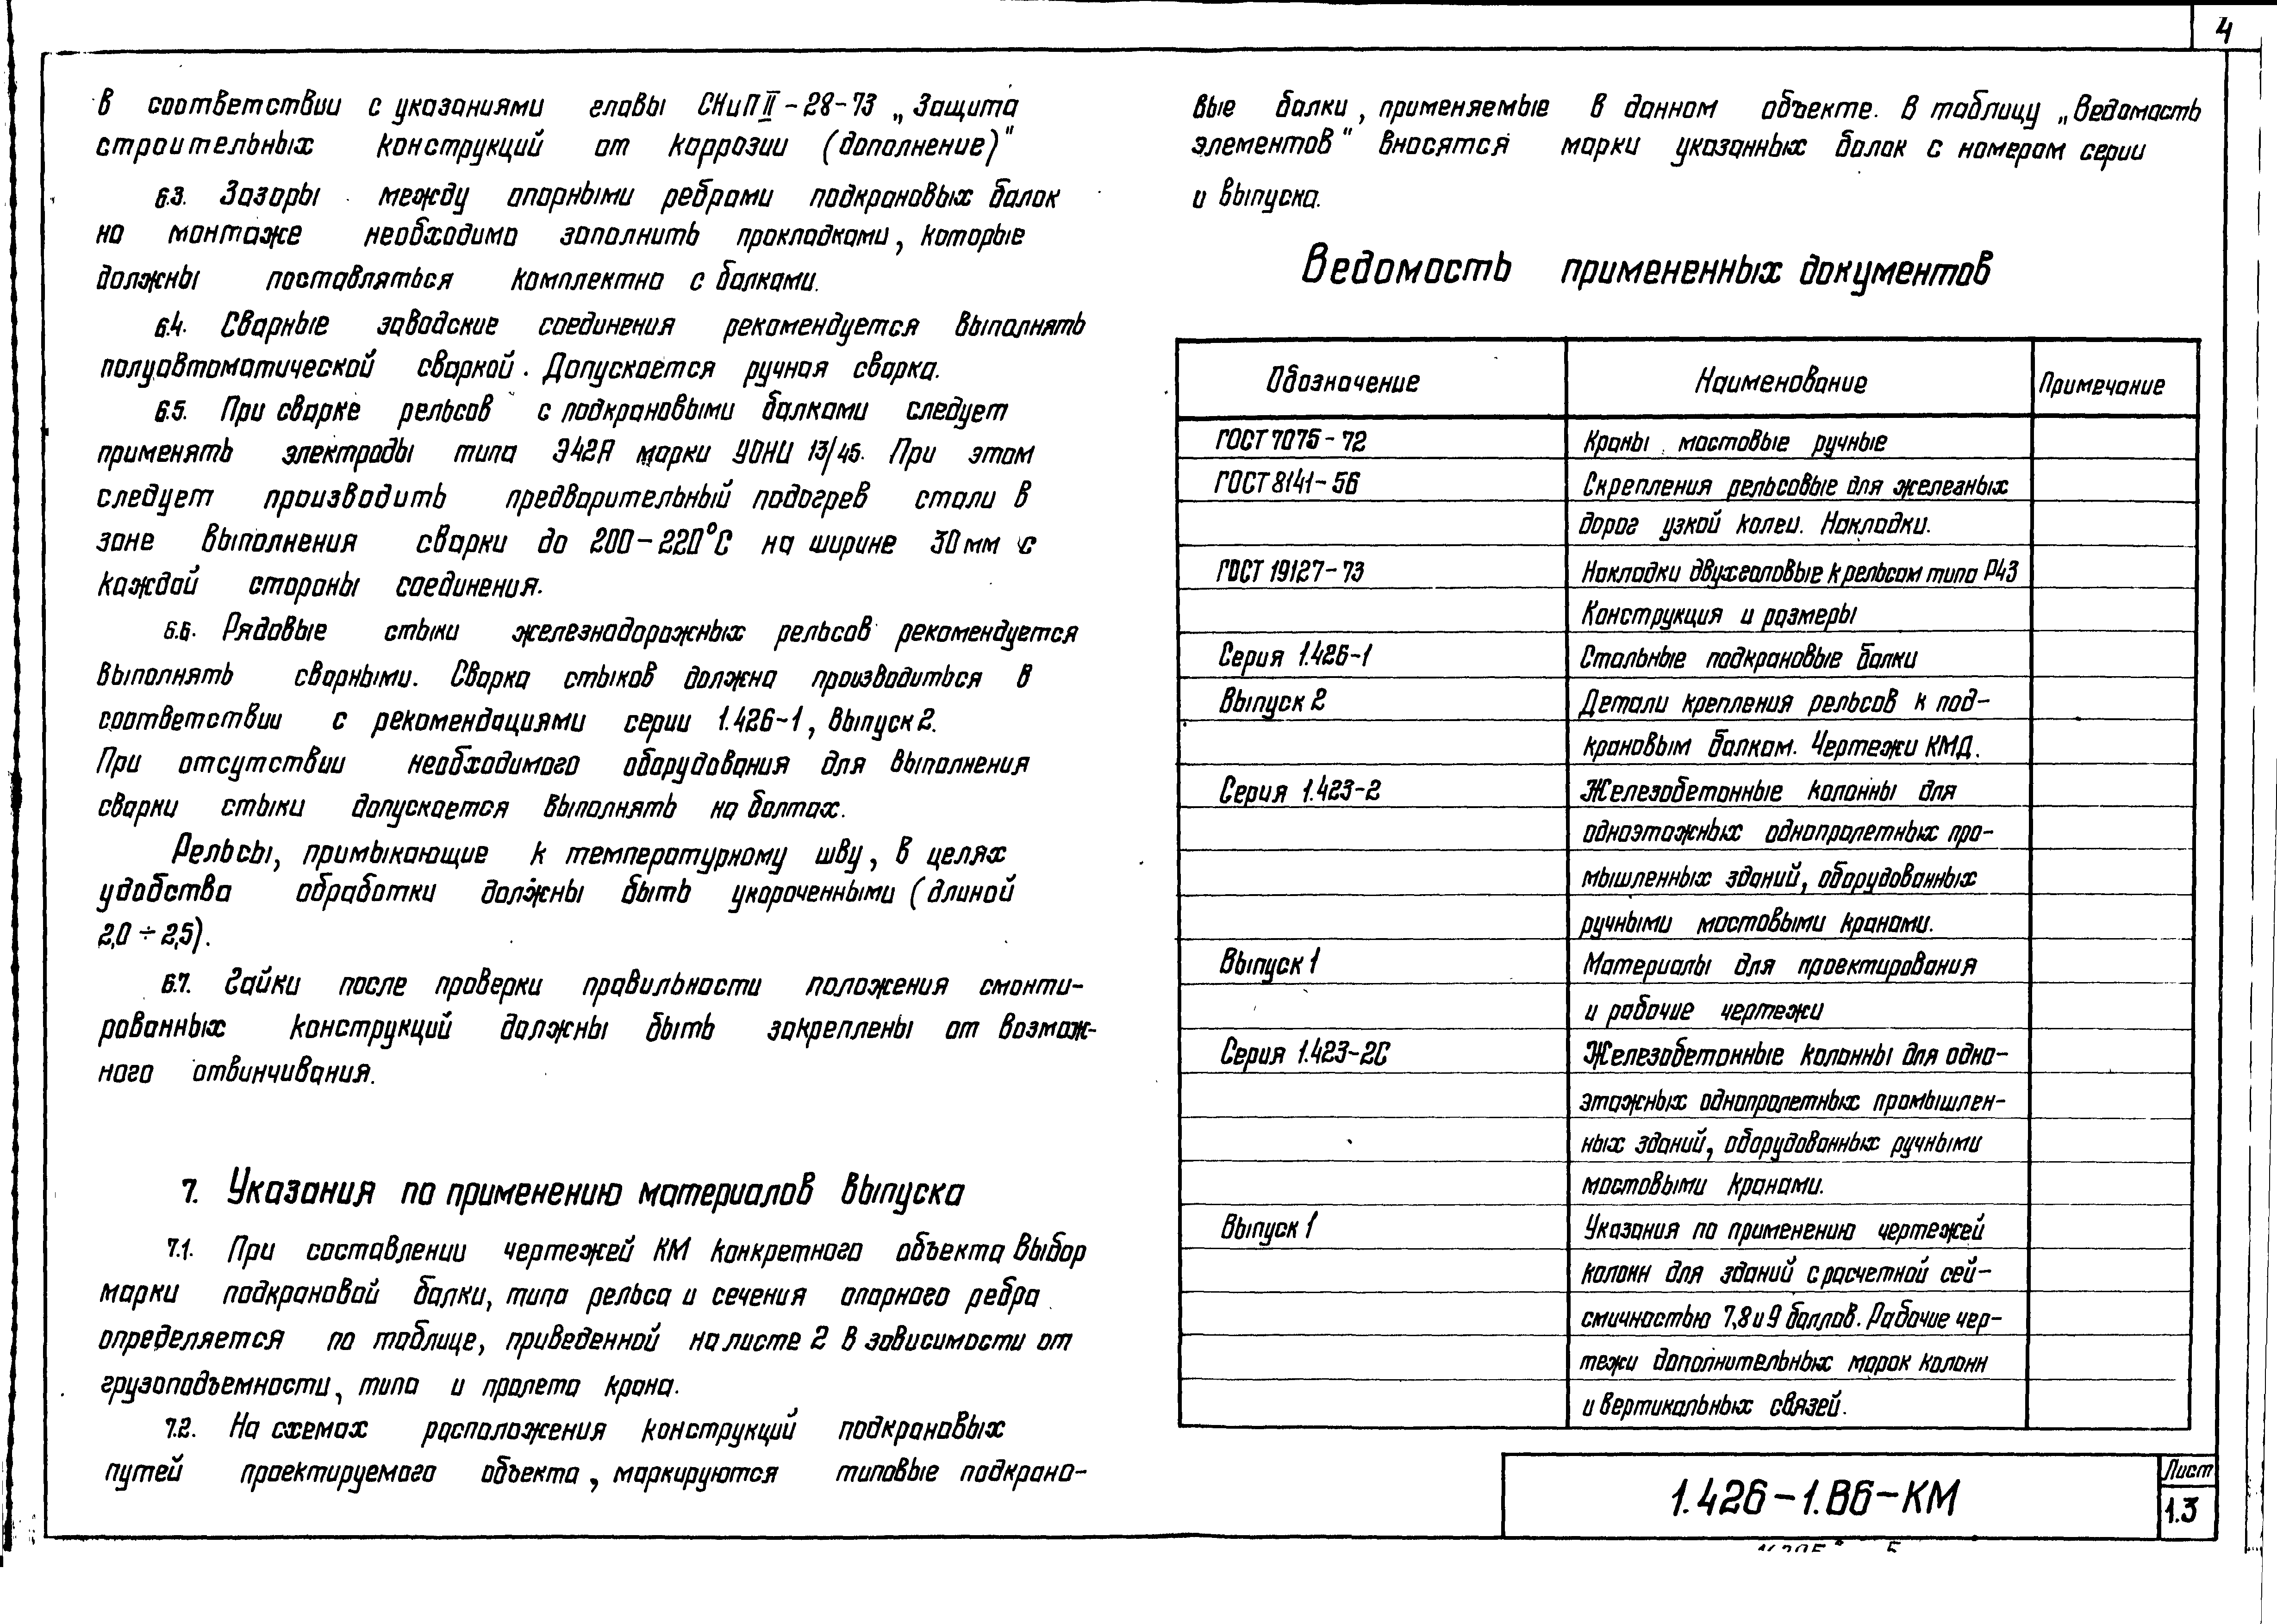 4
в соответствии с указаниями главы СНиП II-28-73 „Защита
строительных конструкций от коррозии (дополнение)"
6.3. Зазоры между опорными ребрами подкрановых балок
на монтаже необходимо заполнить прокладками, которые
должны поставляться комплектно с балками.
6.4. Сварные заводские соединения рекомендуется выполнять
полуавтоматической сваркой. Допускается ручная сварка.
6.5. При сварке рельсов с подкрановыми балками следует
применять электроды типа Э42А марки УОНИ 13/45. При этом
следует производить предварительный подогрев стали в
зоне выполнения сварки до 200-220°С на ширине 30 мм с
каждой стороны соединения.
6.6. Рядовые стыки железнодорожных рельсов рекомендуется
выполнять сварными. Сварка стыков должна производиться в
соответствии с рекомендациями серии 1.426-1, выпуск 2.
При отсутствии необходимого оборудования для выполнения
сварки стыки допускается выполнять на болтах.
Рельсы, примыкающие к температурному шву, в целях
удобства обработки должны быть укороченными (длиной
2,0 ÷ 2,5).
6.7. Гайки после проверки правильности положения смонти-
рованных конструкций должны быть закреплены от возмож-
ного отвинчивания.
7. Указания по применению материалов выпуска
7.1. При составлении чертежей КМ конкретного объекта выбор
марки подкрановой балки, типа рельса и сечения опорного ребра
определяется по таблице, приведенной на листе 2 в зависимости от
грузоподъемности, типа и пролета крана.
7.2. На схемах расположения конструкций подкрановых
путей проектируемого объекта, маркируются типовые подкрано-
вые балки, применяемые в данном объекте. В таблицу „Ведомость
элементов" вносятся марки указанных балок с номером серии
и выпуска.
Ведомость примененных документов
Обозначение Наименование Примечание
ГОСТ 7075-72 Краны мостовые ручные
ГОСТ 8141-56 Скрепления рельсовые для железных
дорог узкой колеи. Накладки.
ГОСТ 19127-73 Накладки двухголовые к рельсам типа Р43
Конструкция и размеры
Серия 1.426-1 Стальные подкрановые балки
Выпуск 2 Детали крепления рельсов к под-
крановым балкам. Чертежи КМД.
Серия 1.423-2 Железобетонные колонны для
одноэтажных однопролетных про-
мышленных зданий, оборудованных
ручными мостовыми кранами.
Выпуск 1 Материалы для проектирования
и рабочие чертежи
Серия 1.423-2С Железобетонные колонны для одно-
этажных однопролетных промышлен-
ных зданий, оборудованных ручными
мостовыми кранами.
Выпуск 1 Указания по применению чертежей
колонн для зданий с расчетной сей-
смичностью 7,8 и 9 баллов. Рабочие чер-
тежи дополнительных марок колонн
и вертикальных связей.
1.426-1.В6-КМ
Лист
1.3